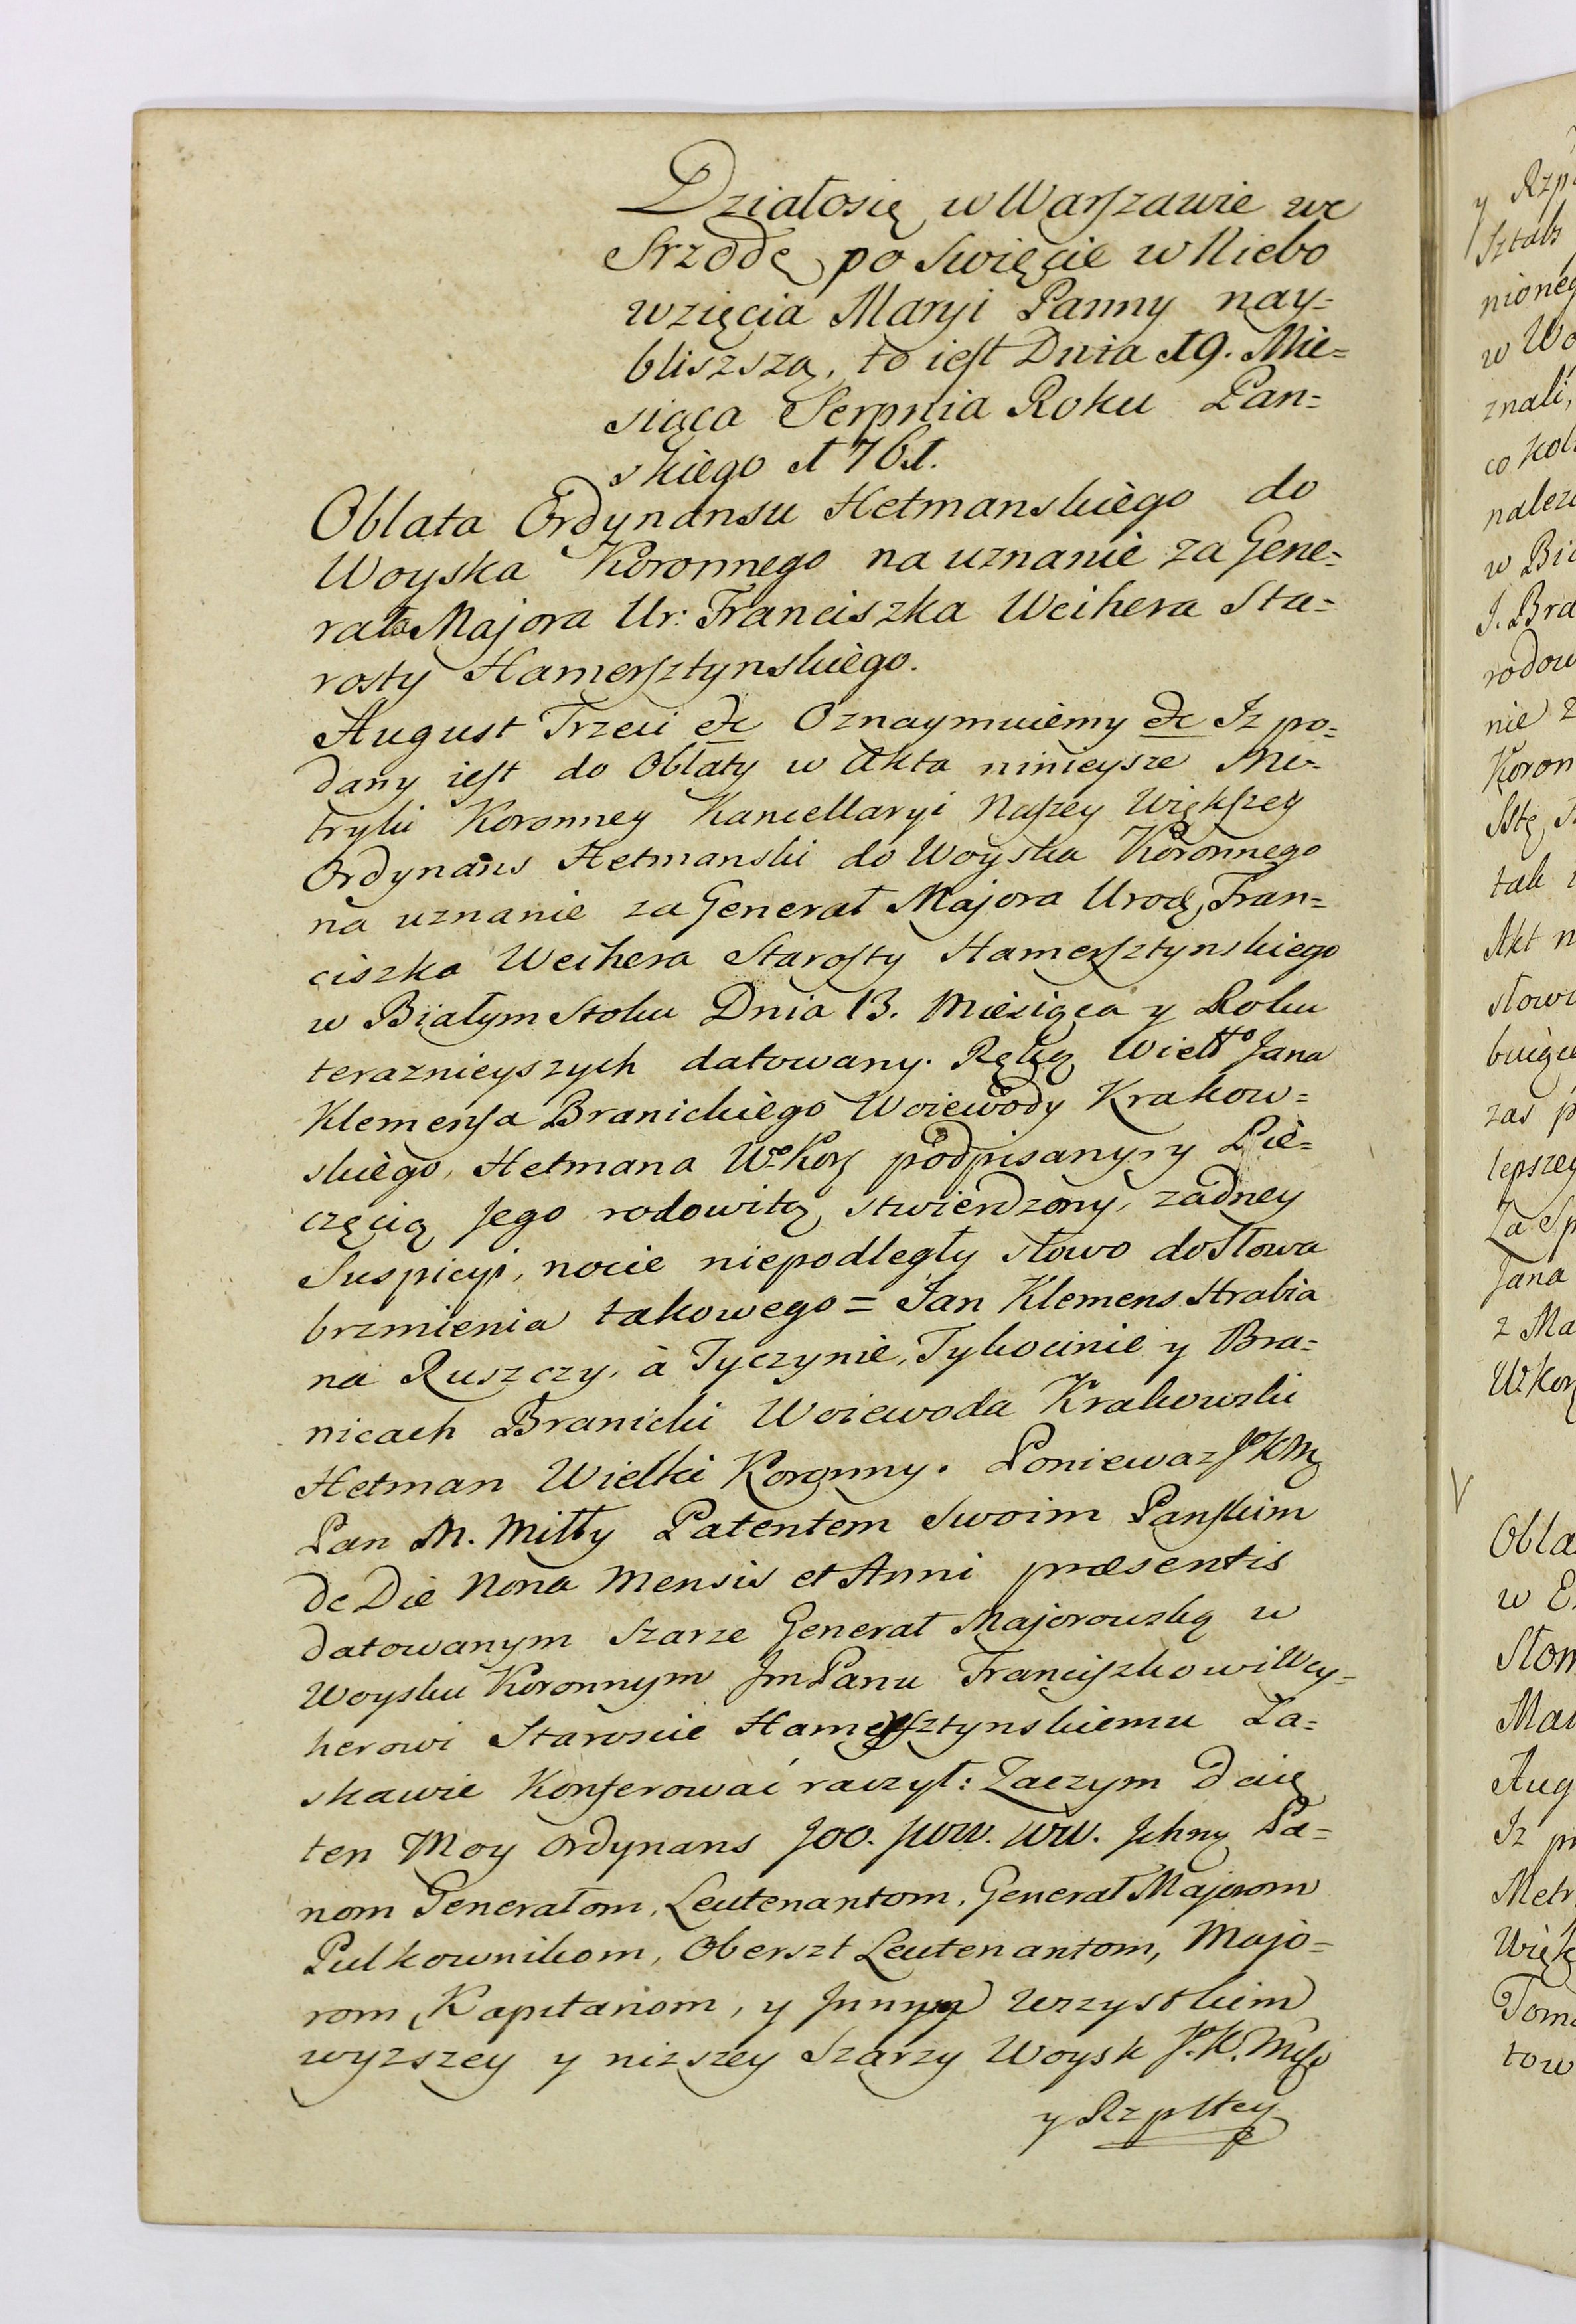 Działosię w Warszawie we
Srzodę po Swięcie w Niebo
wzięcia Maryi Panny nay=
bliszszą, to iest Dnia 19. Mie=
siąca Sierpnia Roku Pan=
skiego 1761.
Oblata Ordynansu Hetmanskiego do
Woyska Koronnego na uznanie za Gene=
rała Majora Ur: Franciszka Weihera Sta=
rosty Hamersztynskiego.
August Trzeci etc Oznaymuiemy etc Iz po=
dany iest do Oblaty w Akta ninieysze Me=
tryki Koronney Kancellaryi Naszey Większey
Ordynans Hetmanski do Woyska Koronnego
na uznanie za Generał Majora Urodz Fran=
ciszka Weihera Starosty Hamersztynskiego
w Białymstoku Dnia 13. Miesiąca y Roku
teraznieyszych datowany. Ręką Wielgo Jana
Klemensa Branickiego Woiewody Krakow=
skiego, Hetmana Wo Kor podpisany, y Pie=
częcią Jego rodowitą stwierdzony, zadney
Suspicyi, nocie niepodległy słowo do słowa
brzmienia takowego = Jan Klemens Hrabia
na Ruszczy, à Tyczynie, Tykocinie y Bra=
nicach Branicki Woiewoda Krakowski
Hetman Wielki Koronny. Poniewaz JoKMc
Pan M. Miłły Patentem Swoim Panskim
de Die Nona Mensis et Anni præsentis
datowanym Szarze Generał Majorowską w
Woysku Koronnym Jm Panu Franciszkowi Wey=
herowi Staroscie Hamersztynskiemu Ła=
skawie Konferować raczył: Zaczym daię
ten Moy Ordynans Joo. Jww. ww. Jchmc Pa=
nom Generałom, Leutenantom, Generał Majorom
Pulkownikom, Oberszt Leutenantom, Majo=
rom, Kapitanom, y Innym Wszystkim
wyzszey y nizszey Szarzy Woysk J.K.Msci
y Rzpltey